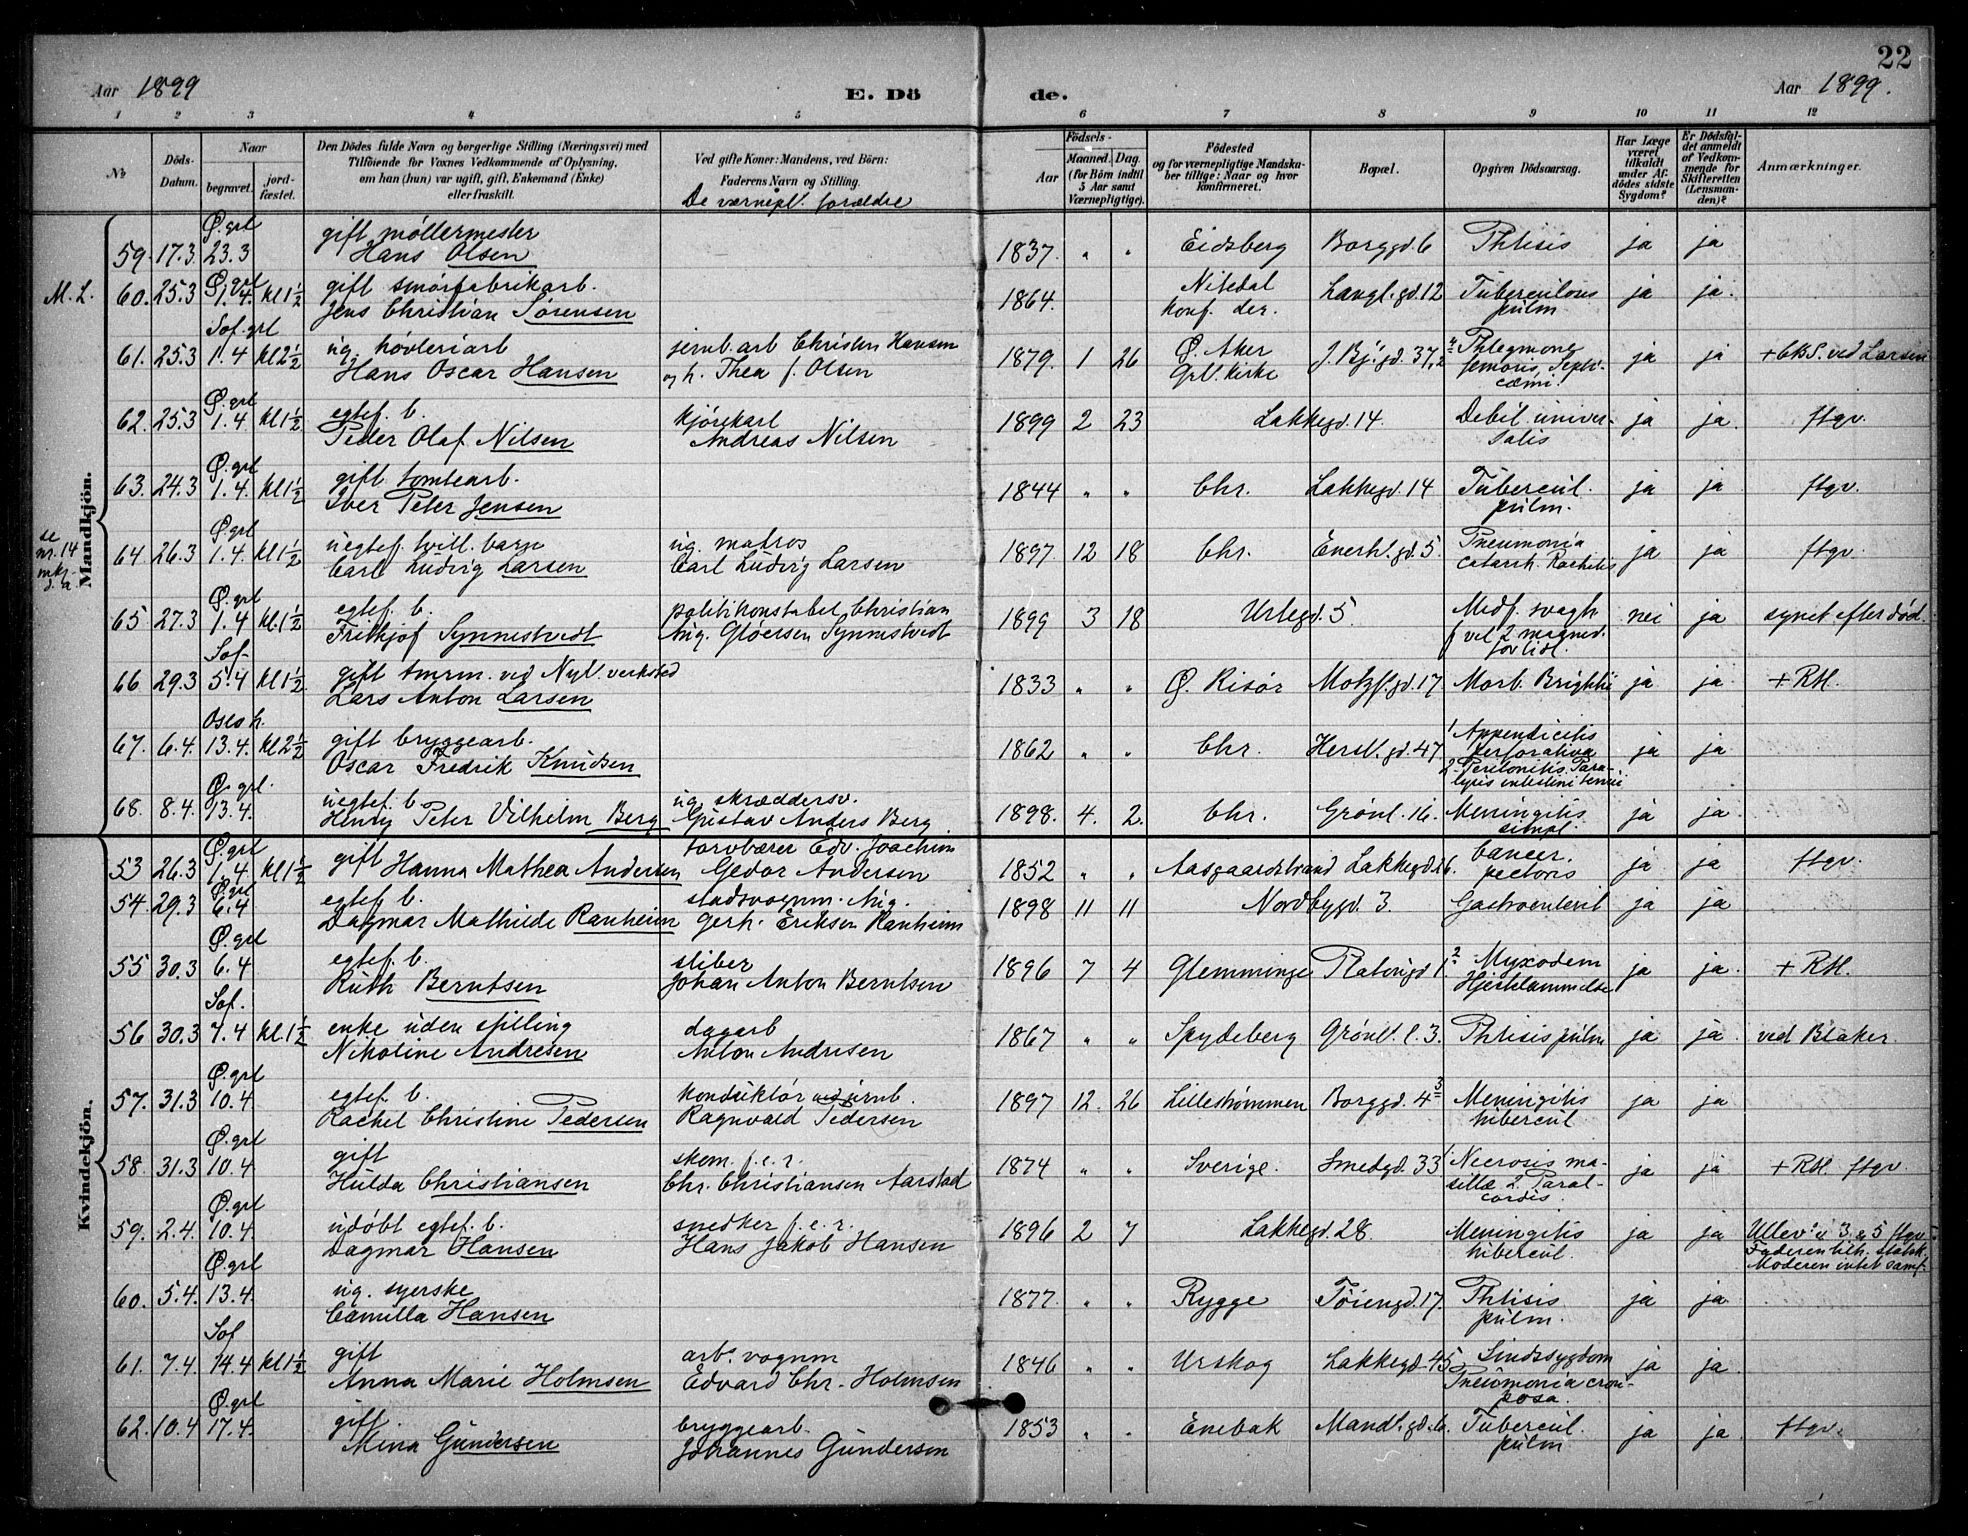 22
Aar 1899
E. Dö
de.
Aar 1899.
1 2 3 4 5 6 7 8 9 10 11 12
No
Döds-Datum.
Naar
begravet.
jord-fæstet.
Den Dödes fulde Navn og borgerlige Stilling (Næringsvei) med
Tilföiende for Voxnes Vedkommende af Oplysning,
om han (hun) var ugift, gift, Enkemand (Enke)
eller fraskilt.
Ved gifte Koner: Mandens, ved Börn:
Faderens Navn og Stilling.
De værnepl. forældre
Födsels-
Aar
Maaned.
Dag.
(for Börn indtil
5 Aar samt
Værnepligtige).
Födested
og for værnepligtige Mandska-
ber tillige: Naar og hvor
konfirmeret.
Bopæl.
Opgiven Dödsaarsag.
Har Læge
været
tilkaldt
under Af-
dödes sidste
Sygdom?
Er Dödsfal-
det anmeldt
af Vedkom-
mende for
Skifteretten
(Lensman-
den)?
Anmærkninger.
Mandkjön.
Ø. grl
gift møllermester
59. 17.3 23.3 Hans Olsen 1837. " " Eidsberg Borggd. 6 Phtisis ja ja
M. L. 60. 25.3 Ø. grl 1.4. kl 1½ gift smørfabrikarb.
Jens Christian Sørensen 1864. Nitedal konf. der. Langl. gd. 12 Tuberculous pulm ja ja.
Sof. grl
61. 25.3 1.4 kl 2½ ug. høvleriarb
Hans Oscar Hansen jernb. arb Christen Hansen
og h. Thea f. Olsen 1879. 1 26 Ø. Aker
Grl. Kirke J. Bj. gd. 37, Phlegmone
femoris, Septi-
cæmi ja ja + CKS. ved Larsen
Ø. grl
62. 25.3 1.4 kl 1½ egtef. b.
Peder Olaf Nilsen kjørekarl
Andreas Nilsen 1899 2 23 Lakkegd. 14. Debil. univer-
salis ja ja. ftgv.
Ø. grl
63. 24.3 1.4. kl 1½ gift tomtearb.
Iver Peter Jensen 1844 " " Chr. Lakkegd. 14 Tubercul.
pulm. ja ja ftgv.
se nr. 14
Ø. grl
64 26.3 1.4. kl 1½ uegtef. tvill. barn
Carl Ludvig Larsen ug. matros
Carl Ludvig Larsen 1897. 12 18 Chr. Enerh. gd. 5. Pneumonia
catarrh. Rachitis ja ja ftgv.
Ø. grl
65 27.3 1.4 kl. 1½ egtef. b.
Frithjof Synnestvedt politikonstabel Christian
Aug. Gløersen Synnestvedt 1899 3 18 Urtegd. 5. Medf. svagh
f vel 2 maaned.
for tidl. nei ja synet efter død.
Sof.
66. 29.3 5.4 kl 1½. gift tmrm. ved Nyl. verksted
Lars Anton Larsen 1833 " " Ø. Risør Motzf. gd. 17 Morb. Brightii ja ja + RH.
Oslo h.
67. 6.4. 13.4. kl 2½ gift bryggearb.
Oscar Fredrik Knudsen 1862 " " Chr. Hersl. gd. 47. 1 Appendicitis
perforativa
2 Peritonitis. Para-
lysis intestini tenui ja ja
Ø. grl.
68. 8.4. 13.4. uegtef. b.
Henry Peter Vilhelm Berg ug. skræddersv.
Gustav Anders Berg 1898. 4. 2. Chr. Grønl. 16. Meningitis
simpl. ja ja.
Kvindekjön.
Ø. grl
53 26.3 1.4 kl 1½ gift Hanna Mathea Andersen torvbærer Edv. Joachim
Gedor Andersen 1852 " " Aasgaardstrand Lakkegd. 16. Cancer.
pectoris ja ja ftgv.
Ø grl
54. 29.3 6.4 egtef. b.
Dagmar Mathilde Ranheim stadsvognm. Aug.
Gerh. Eriksen Ranheim 1898 11 11 Nordbygd. 3. Gastroenterit ja ja
Ø. grl
55 30.3 6.4 egtef. b.
Ruth Berntsen sliber
Johan Anton Berntsen 1896 7 4 Glemminge Platougd 1. Myxodem
Hjertelammelse ja ja. + RH.
Sof.
56 30.3 7.4 kl 1½ enke uden stilling
Nikoline Andresen dagarb
Anton Andresen 1867 " " Spydeberg Grønl. l. 3. Phtisis pulm ja ja. ved Blaker.
Ø. grl
57. 31.3 10.4 egtef. b.
Rachel Christine Pedersen konduktør ved jernb.
Ragnvald Pedersen 1897 12. 26 Lillestrømmen Borggd. 43 Meningitis
tubercul ja ja
Ø. grl
58. 31.3 10.4 gift
Hulda Christiansen skom. f.e.r.
Chr. Christiansen Aarstad 1874 " " Sverige. Smedgd. 33 1 Necrosis ma-
xillæ 2. Paral-
cordis. ja ja + RH. ftgv.
Ø. grl
59. 2.4. 10.4. udøbt egtef. b.
Dagmar Hansen snedker f.e.r.
Hans Jakob Hansen 1896 2 7 Lakkegd. 28. Meningitis
tubercul. ja ja Ullev. 3. 5 ftgv
Faderen tilh. statsk.
Moderen intet samf.
Ø. grl
60. 5.4. 13.4. ug. syerske
Camilla Hansen 1877. " " Rygge Tøiengd. 17. Phtisis
pulm. ja ja.
Sof
61. 7.4. 14.4 kl 1½ gift
Anna Marie Holmsen arb. vognm
Edvard Chr. Holmsen 1846 " " Urskog Lakkegd. 45 Sindssygdom
Pneumonia crou-
posa. ja ja.
Ø grl
62. 10.4 17.4. gift
Mina Gundersen bryggearb.
Johannes Gundersen 1853 " " Enebak Mandl. gd. 6. Tubercul.
pulm ja ja ftgv.